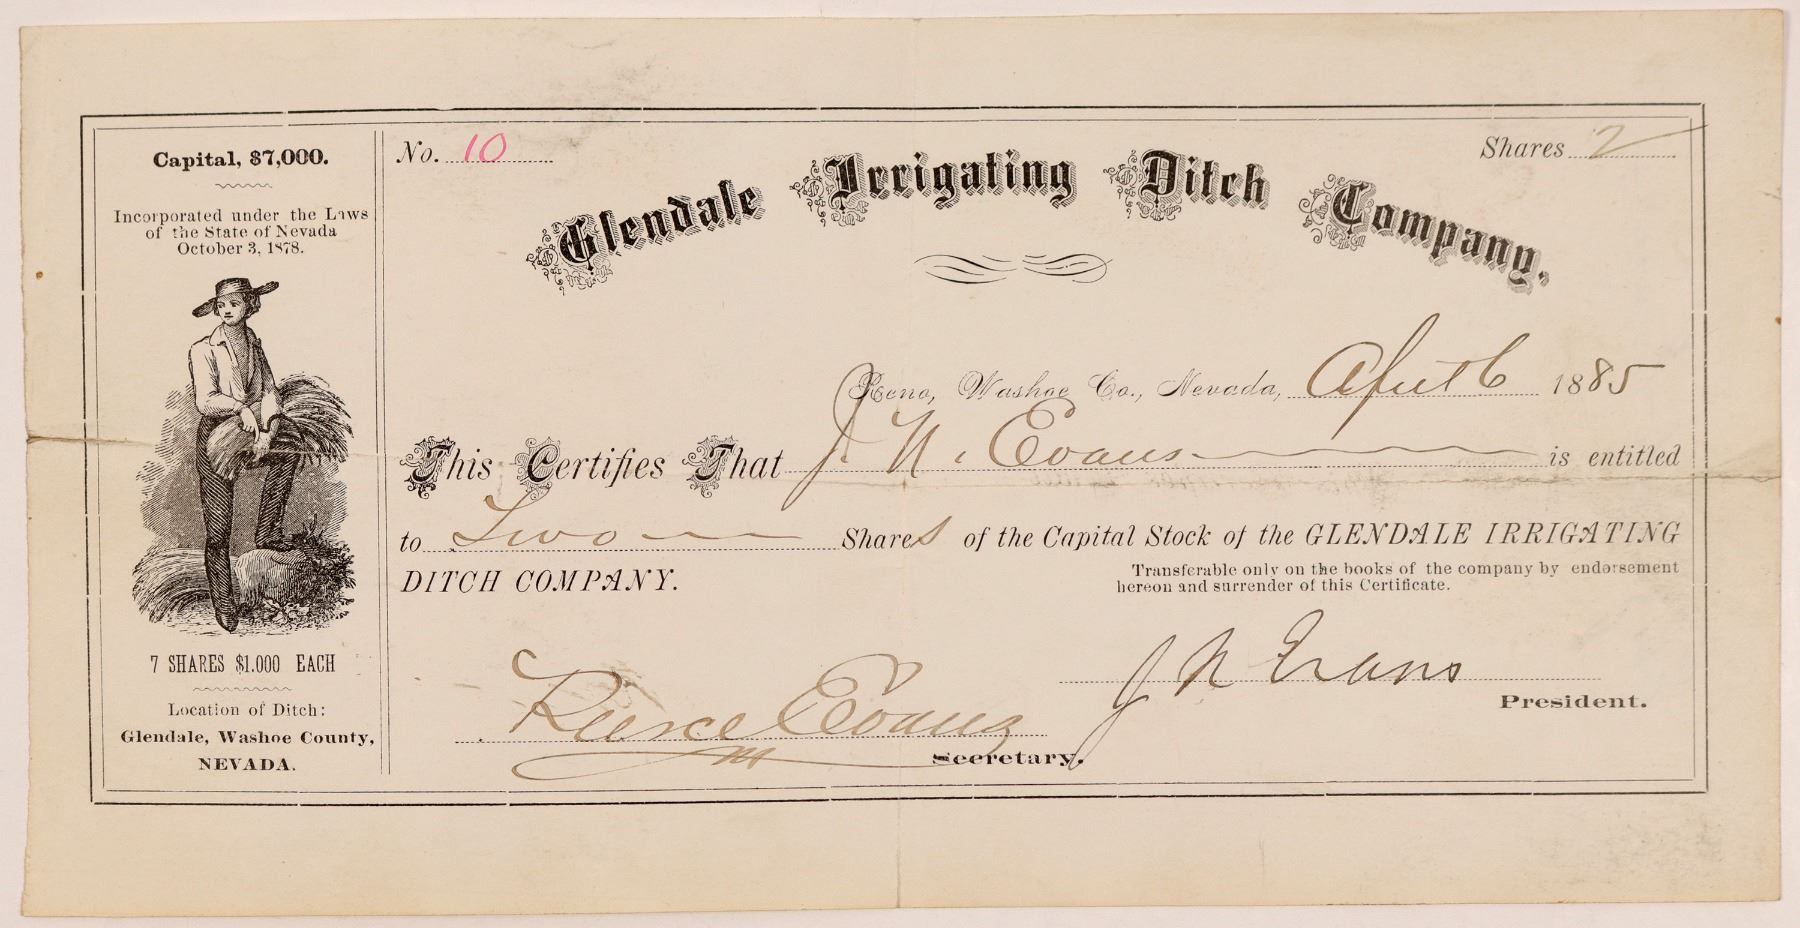 Capital, $7,000.
Incorporated under the Laws
of the State of Nevada
October 3, 1878.
7 SHARES $1.000 EACH
Location of Ditch:
Glendale, Washoe County,
NEVADA.
No. 10
Shares 2
Glendale Irrigating Ditch Company.
Reno, Washoe Co., Nevada, April 6 1885
This Certifies That J. N. Evans is entitled
to Two Shares of the Capital Stock of the GLENDALE IRRIGATING
DITCH COMPANY.
Transferable only on the books of the company by endorsement
hereon and surrender of this Certificate.
J N Evans
President.
Pierce Evans
Secretary.